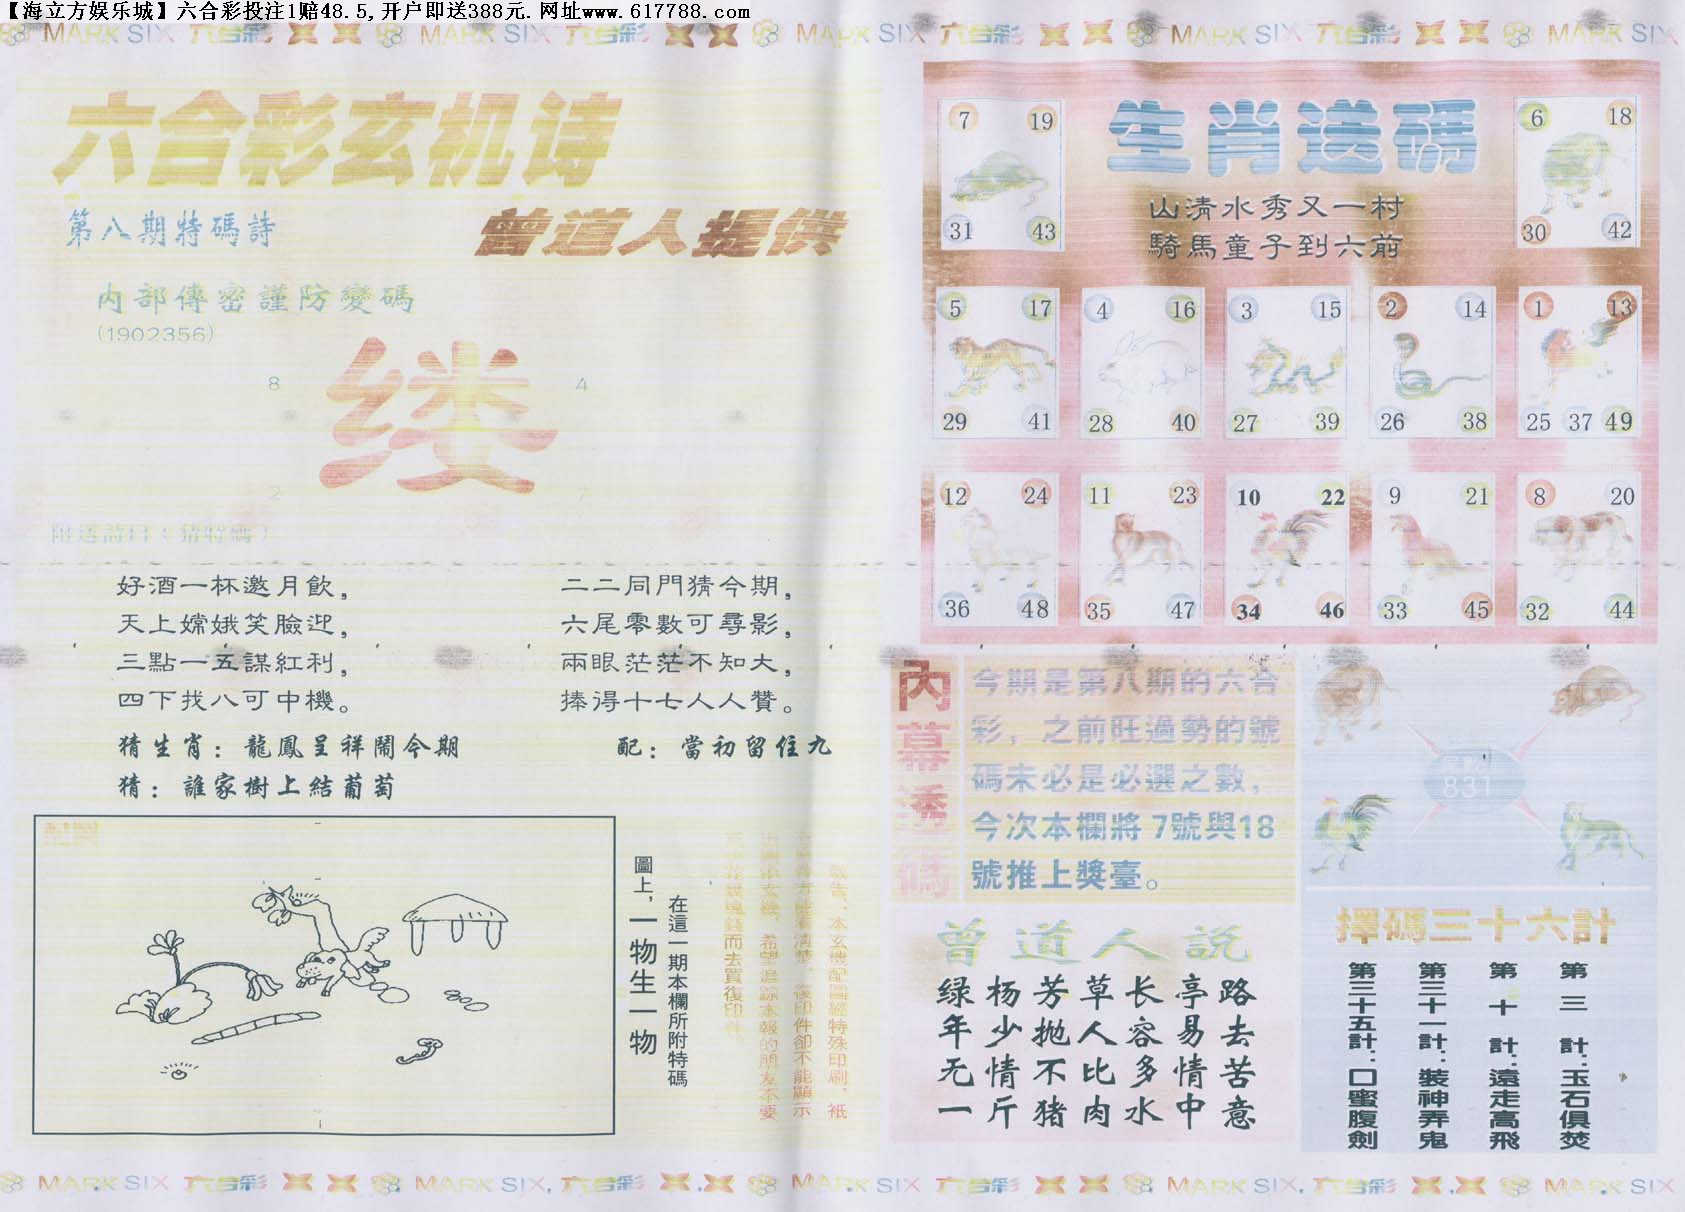 【海立方娱乐城】六合彩投注1赔48.5,开户即送388元.网址www.617788.com
MARK SIX 六合彩 MARK SIX 六合彩 MARK SIX 六合彩 MARK SIX 六合彩 MARK SIX
六合彩玄机诗
第八期特碼詩
曾道人提供
内部傳密謹防變碼
(1902356)
8
4
缕
2
7
附送詩曰（猜特碼）
好酒一杯邀月飲，
天上嫦娥笑臉迎，
三點一五謀紅利，
四下找八可中機。
二二同門猜今期，
六尾零數可尋影，
兩眼茫茫不知大，
捧得十七人人贊。
猜生肖：龍鳳呈祥鬧今期
配：當初留住九
猜：誰家樹上結葡萄
在這一期本欄所附特碼
圖上，一物生一物
生肖送碼
山清水秀又一村
騎馬童子到六前
7 19
31 43
6 18
30 42
5 17
29 41
4 16
28 40
3 15
27 39
2 14
26 38
1 13
25 37 49
12 24
36 48
11 23
35 47
10 22
34 46
9 21
33 45
8 20
32 44
內幕透碼
今期是第八期的六合
彩，之前旺過勢的號
碼未必是必選之數，
今次本欄將7號與18
號推上獎臺。
831
曾道人説
路去苦意
亭易情中
长容多水
草人比肉
芳抛不猪
杨少情斤
绿年无一
擇碼三十六計
第三計：玉石俱焚
第十計：遠走高飛
第三十一計：裝神弄鬼
第三十五計：口蜜腹劍
MARK SIX 六合彩 MARK SIX 六合彩 MARK SIX 六合彩 MARK SIX 六合彩 MARK SIX